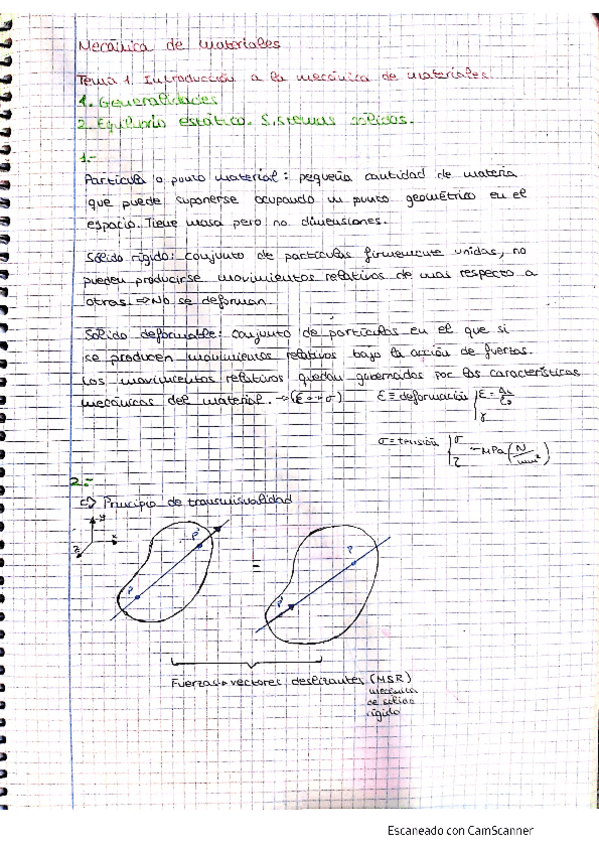 Mecánica de materiales
Tema 1. Introducción a la mecánica de materiales.
1. Generalidades
2. Equilibrio estático. Sistemas sólidos.
1.-
Partícula o punto material: pequeña cantidad de materia
que puede suponerse ocupando un punto geométrico en el
espacio. Tiene masa pero no dimensiones.
Sólido rígido: conjunto de partículas firmemente unidas, no
pueden producirse movimientos relativos de unas respecto a
otras. ⇒ No se deforman.
Sólido deformable: conjunto de partículas en el que si
se producen movimientos relativos bajo la acción de fuerzas.
Los movimientos relativos quedan gobernados por las características
mecánicas del material. → (ε ↔ σ) ε ≡ deformación
γ
σ ≡ tensión σ
τ
MPa (N/mm²)
2.-
⇒ Principio de transmisibilidad
y
z x
P' P
=
P P'
Fuerzas → vectores deslizantes (MSR)
mecánica
de sólido
rígido
Escaneado con CamScanner